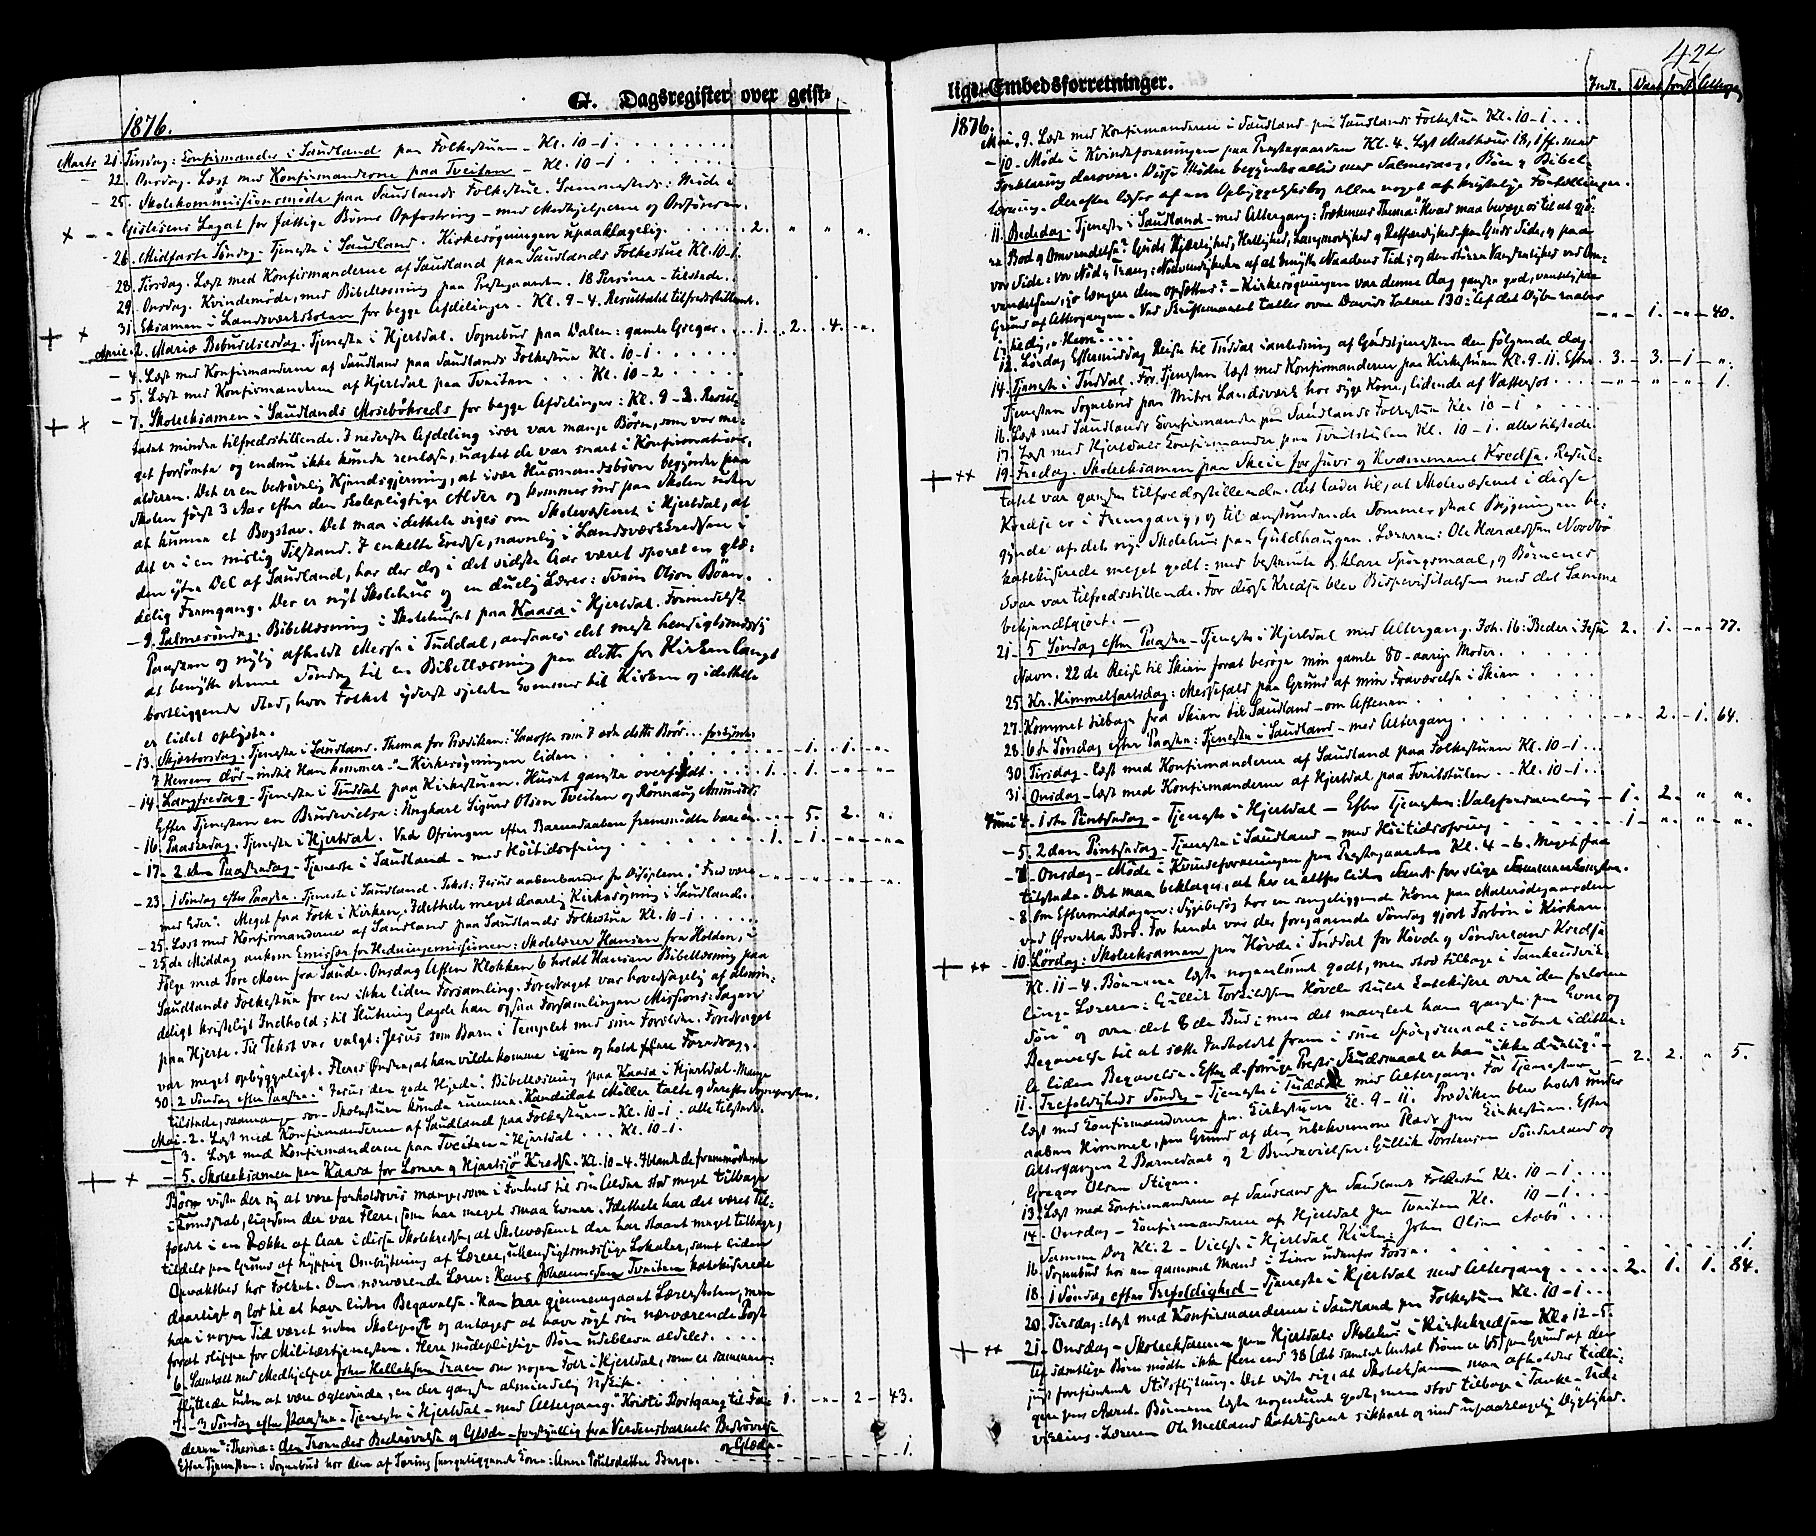 G. Dagsregister over geist-
1876.
Marts 21. Tirsdag: Konfirmander i Saudland paa Folkestuen - Kl. 10-1
- 22. Onsdag. Læst med Konfirmanderne paa Tveiten - Kl. 10-1
- 25. Skolekommissionsmøde paa Saudlands Folkestue. Sammesteds: Møde i
Gislesens Legat for fattige Børns Opfostring - med Medhjelperne og Ordføreren.
- 26. Midfaste Søndag - Tjeneste i Saudland. Kirkesøgningen upaaklagelig. 2. " " "
28. Tirsdag. Læst med Konfirmanderne af Saudland paa Saudlands Folkestue Kl. 10-1.
29. Onsdag. Kvindemøde, med Bibellæsning paa Prestegaarden. 18 Personer tilstede.
31. Eksamen i Landsværkskolen for begge Afdelinger - Kl. 9-4. Resultatet tilfredsstillende.
April 2. Mariæ Bebudelsesdag. Tjeneste i Hjertdal. Sognebud paa Dalen: gamle Gregar. 1. 2. 4. "
- 4. Læst med Konfirmanderne af Saudland paa Saudlands Folkestue Kl. 10-1.
- 5. Læst med Konfirmanderne af Hjertdal paa Tveiten . . . Kl. 10-2
- 7. Skoleeksamen i Saudlands Mosebøkreds for begge Afdelinger: Kl. 9-3. Resul-
tatet mindre tilfredsstillende. I nederste Afdeling især var mange Børn, som var me-
get forsømte og endnu ikke kunde renlæse, uagtet de var snart i Konfirmations-
alderen. Det er en bedrøvelig Kjendsgjerning, at især Husmandsbørn begynder paa
Skolen først 3 Aar efter den skolepligtige Alder og kommer ind paa Skolen uden
at kunne et Bogstav. Det maa i det hele siges om Skolevæsenet i Hjertdal, at
det er i en mislig Tilstand. I enkelte Kredse, navnlig i Landsværkskredsen i
den ytre Del af Saudland, har der dog i det sidste Aar været sporet en glæ-
delig Fremgang. Der er nyt Skolehus og en duelig Lærer: Svein Olson Bøen.
- 9. Palmesøndag. Bibellæsning i Skolehuset paa Kaasa i Hjertdal. Formedelst
Paasken og nylig afholdt Messe i Tuddal, ansaaes det mest hensigtsmæssig
at benytte denne Søndag til en Bibellæsning paa dette fra Kirken langt
bortliggende Sted, hvor Folket yderst sjelden kommer til Kirken og i det hele
er lidet oplyste.
- 13. Skjærtorsdag. Tjeneste i Saudland. Thema for Prædiken: "Saaofte som I æde dette Brød ... forkynder
I Herrens Død - indtil Han kommer" - Kirkesøgningen liden. " 1. 1. "
- 14. Langfredag - Tjeneste i Tuddal paa Kirkestuen. Huset ganske overfyldt. 1. 1. " "
Efter Tjenesten en Brudevielse: Ungkarl Sigurd Olsen Tveiten og Rønnaug Amunds.
- 16. Paaskedag - Tjeneste i Hjertdal. Ved Ofringen efter Barnedaaben fremmødte bare én. " 5. 2. "
- 17. 2den Paaskedag - Tjeneste i Saudland - med Høitidsofring 1. 1. " "
- 23. 1 Søndag efter Paaske. Tjeneste i Saudland. Tekst: Jesus aabenbarer sig for Disiplene: "Fred være
med Eder". Meget faa Folk i Kirken. I det hele meget daarlig Kirkesøgning i Saudland.
- 25. Læst med Konfirmanderne af Saudland paa Saudlands Folkestue Kl. 10-1
- 25de Middag ankom Emissær for Hedningemissionen: Skolelærer Hansen fra Holden, i
Følge med Tore Moen fra Saude. Onsdag Aften Klokken 6 holdt Hansen Bibellæsning paa
Saudlands Folkestue for en ikke liden Forsamling. Foredraget var hovedsagelig af almin-
deligt kristeligt Indhold; til Slutning lagde han ogsaa Forsamlingen Missions-Sagen
paa Hjerte. Til Tekst var valgt: Jesus som Barn i Templet med sine Forældre. Foredraget
var meget opbyggeligt. Flere ønskede, at han vilde komme igjen og holde flere Foredrag.
30. 2 Søndag efter Paaske: "Jesus den gode Hyrde". Bibellæsning paa Kaasa i Hjertdal. Mange
tilstede, saamange som Skolestuen kunde rumme. Kandidat Møller talte og derefter Sognepresten.
Mai - 2. Læst med Konfirmanderne af Saudland paa Folkestuen - Kl. 10-1: alle tilstede.
- 3. Læst med Konfirmanderne paa Tveiten i Hjertdal . . . Kl. 10-1.
- 5. Skoleeksamen paa Kaasa for Loner og Hjartsjø Kredse. Kl. 10-4. Iblandt de fremmødte
Børn viste der sig at være forholdsvis mange, som i Forhold til sin Alder stod meget tilbage
i Kundskab, ligesom der var Flere, som har meget smaa Evner. I det hele har det været Til-
fældet i en Række af Aar i disse Skolekredse, at Skolevæsenet der har staaet meget tilbage,
tildels paa Grund af hyppig Ombytning af Lærere, uhensigtsmæssige Lokaler, samt liden
Opvakthed hos Folket. Den nærværende Lærer: Hans Johannesen Tveiten katekiserede
daarligt og lod til at have liden Begavelse. Han har gjennemgaaet Lærerskolen, men
har i nogen Tid været uden Skolepost og antages at have søgt sin nærværende Post
forat slippe for Militærtjenesten. Flere mødepligtige Børn udebleve aldeles.
6. Samtalt med Medhjelper John Helleksen Traen om nogen Folk i Hjertdal, som er sammen-
flyttede uden at være ægteviede, en der ganske almindelig Uskik.
7. - 3 Søndag efter Paaske - Tjeneste i Hjertdal - med Altergang. "Kristi Bortgang til Fa- 1. " 2 - 43.
deren": Thema: den Troendes Bedrøvelse og Glæde - forskjellig fra Verdensbarnets Bedrøvelse
og Glæde -
Efter Tjenesten: Sognebud hos den af Tæring sengeliggende Kone: Anne Poulsdatter Berge. 1.
424
lige Embedsforretninger.
Indl. Daab Altergang
1876.
Mai, 9. Læst med Konfirmanderne i Saudland paa Saudlands Folkestue Kl. 10-1
- 10. Møde i Kvindeforeningen paa Prestegaarden Kl. 4. Læst Mathæus 18, 1 ff. med
Forklaring derover. Disse Møder begyndes altid med Salmesang, Bøn og Bibel-
læsning. Derefter læses af en Opbyggelsesbog eller noget af kristelige Fortællinger.
11. Bededag - Tjeneste i Saudland - med Altergang: Prækenens Thema: "Hvad maa bevæge os til at gjø-
re Bod og Omvendelse? Guds Kjærlighed, Hellighed, Langmodighed og Retfærdighed paa Guds Side, og paa
vor Side: vor Nød og Trang; Nødvendigheden af at benytte Naadens Tid; og den større Vanskelighed ved Om-
vendelsen, jo længer den opsættes" - Kirkesøgningen var denne Dag ganske god, væsentlig paa
Grund af Altergangen. Ved Skriftemaalet talte over Davids Salme 130: "Af det Dybe raaber " 1. " 40.
jeg til dig, o Herre
12. Lørdag Eftermiddag Reise til Tuddal i anledning af Gudstjenesten den følgende dag
14. Tjeneste i Tuddal. Før Tjenesten læst med Konfirmanderne paa Kirkestuen Kl. 9-11. Efter 3. 3. 1 "
Tjenesten Sognebud paa Mitre Landsværk hos syge Kone, lidende af Vattersot. " " " 1.
16. Læst med Saudlands Konfirmander paa Saudlands Folkestue Kl. 10-1
17. Læst med Hjertdals Konfirmander paa Tveitstulen Kl. 10-1. alle tilstede.
19. Fredag. Skoleeksamen paa Skeie for Juvi og Kvammens Kredse. Resul-
tatet var ganske tilfredsstillende. Det lader til, at Skolevæsenet i disse
Kredse er i Fremgang, og til anstundende Sommer skal Bygningen be-
gynde af det nye Skolehus paa Guldhaugen. Læreren: Ole Haraldsen Nordbø
katekiserede meget godt: med bestemte og klare Spørgsmaal, og Børnenes
Svar var tilfredsstillende. For disse Kredse blev Bispevisitatsen med det Samme
bekjendtgjort. -
21. 5 Søndag efter Paaske - Tjeneste i Hjertdal med Altergang. Joh. 16: Beder i Jesu 2. 1. " 77.
Navn. 22de Reise til Skien forat besøge min gamle 80-aarige Moder.
25. Kr. Himmelfartsdag: Messefald paa Grund af min Fraværelse i Skien
27. Kommet tilbage fra Skien til Saudland - om Aftenen
28. 6te Søndag efter Paaske: Tjeneste i Saudland - med Altergang " 2. 1. 64.
30. Tirsdag - læst med Konfirmanderne af Saudland paa Folkestuen Kl. 10-1
31. Onsdag - læst med Konfirmanderne af Hjertdal paa Tveitstulen - Kl. 10-1
Juni 4. 1ste Pintsedag - Tjeneste i Hjertdal - Efter Tjenesten: Valgforsamling 1. 2. " "
- 5. 2den Pintsedag - Tjeneste i Saudland - med Høitidsofring 1. " " "
- 7. Onsdag - Møde i Kvindeforeningen paa Prestegaarden Kl. 4-6. Meget faa
tilstede. Det maa beklages, at her er altfor liden Sands for slige Sammenkomster.
- 8. Om Eftermiddagen: Sygebesøg hos en sengeliggende Kone paa Malerødegaarden
ved Ørvella Bro. For hende var der foregaaende Søndag gjort Forbøn i Kirken.
- 10. Lørdag: Skoleeksamen paa Høvde i Tuddal for Høvde og Sønderland Kredse
Kl. 11-4. Børnene læste nogenlunde godt, men stod tilbage i Tankeudvik-
ling. Læreren: Gullik Torkildsen Høvde skulde katekisere over "den forlorne
Søn" og over det 8de Bud; men det manglede ham ganske paa Evne og
Begavelse til at sætte Indholdet frem i sine Spørgsmaal: røbede i det he-
le liden Begavelse. Efter d. forrige Prests Skudsmaal er han "ikke duelig". -
11. Trefoldigheds Søndag - Tjeneste i Tuddal med Altergang. Før Tjenesten 2. 2. " 5.
læst med Konfirmanderne paa Kirkestuen Kl. 9-11. Prædiken blev holdt under
aaben Himmel, paa Grund af den ubekvemme Plads paa Kirkestuen. Efter
Altergangen 2 Barnedaab og 2 Brudevielser: Gullik Torstensen Sønderland og
Gregar Olsen Stigen.
13. Læst med Konfirmanderne af Saudland paa Saudlands Folkestue Kl. 10-1
14. Onsdag - Konfirmanderne af Hjertdal paa Tveiten Kl. 10-1
Samme Dag Kl. 2 - Vielse i Hjertdal Kirke: John Olsen Aabø
16. Sognebud hos en gammel Mand i Lien udenfor Fosse. 1.
18. 1 Søndag efter Trefoldighed - Tjeneste i Hjertdal med Altergang 2. 1. 1. 84.
20. Tirsdag: læst med Konfirmanderne i Saudland paa Folkestuen Kl. 10-1
21. Onsdag - Skoleeksamen paa Hjertdals Skolehus i Kirkekredsen Kl. 12-5.
Af samtlige Børn mødte ikke flere end 38 (det samlede Antal Børn er 65) paa Grund af den
just forefindende Stølsflytning. Det viste sig, at Skoleeksamen maa afholdes tidli-
gere paa Aaret. Børnene læste nogenlunde godt, men stod tilbage i Tanke-Ud-
vikling. Læreren Ole Melland katekiserede sikkert og med upaaklagelig Dygtighed.